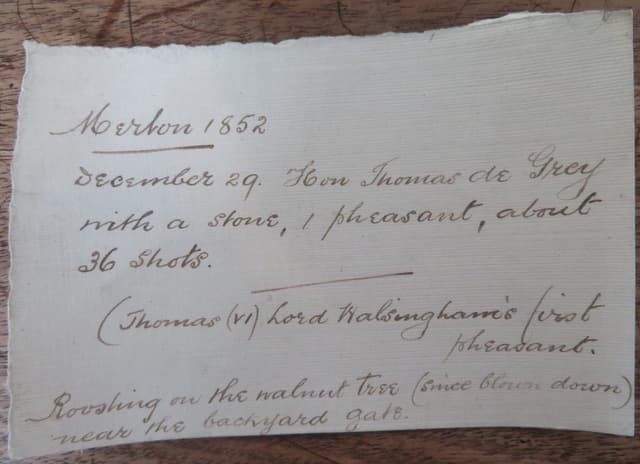 Merton 1852
December 29. Hon Thomas de Grey
with a stone, 1 pheasant, about
36 shots.
(Thomas (VI) Lord Walsingham's first
pheasant.
Roosting on the walnut tree (since blown down)
near the backyard gate.